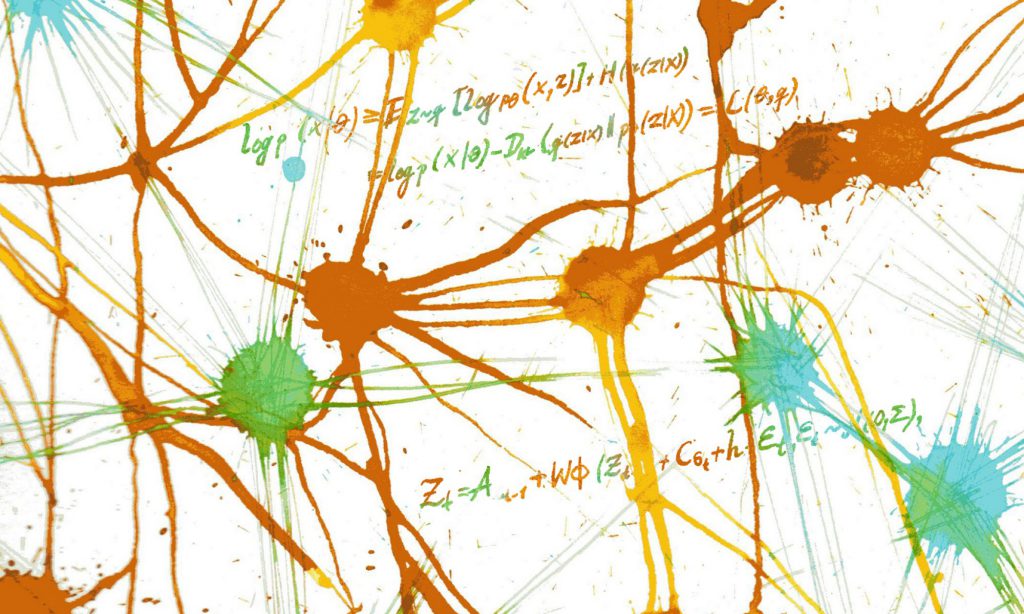 log p (x|θ) ≥ E z~q [log pθ (x,z)] + H (q(z|x))
= log p (x|θ) - D (q(z|x) ‖ p (z|x)) = L(θ,q)
Z t = A + Wφ (Z + C + h + ε t, ε t ~ (0,Σ),